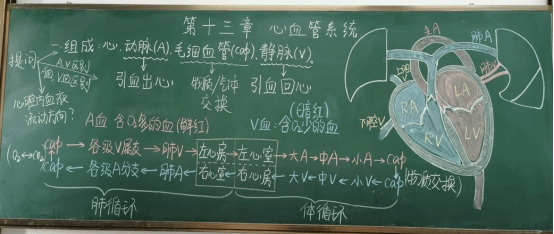 第十三章 心血管系统
一.组成:心.动脉(A).毛细血管(cap),静脉(V).
提问
A.V区别
引血出心
物质/气体
交换
引血回心
心腔内血液
流动方向?
A血 含O₂多的血(鲜红)
V血:含O₂少的血
(暗红)
cap→各级V属支→肺V→左心房→左心室→大A→中A→小A→cap
(O₂↔CO₂)
cap←各级A分支←肺A←右心室←右心房←大V←中V←小V←cap
(物质交换)
肺循环
体循环
主A
肺A
肺V
上腔V
下腔V
LA
RA
RV
LV